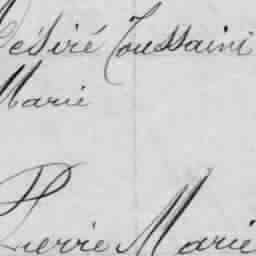 Désiré Toussaint
Marie
Pierre Marie